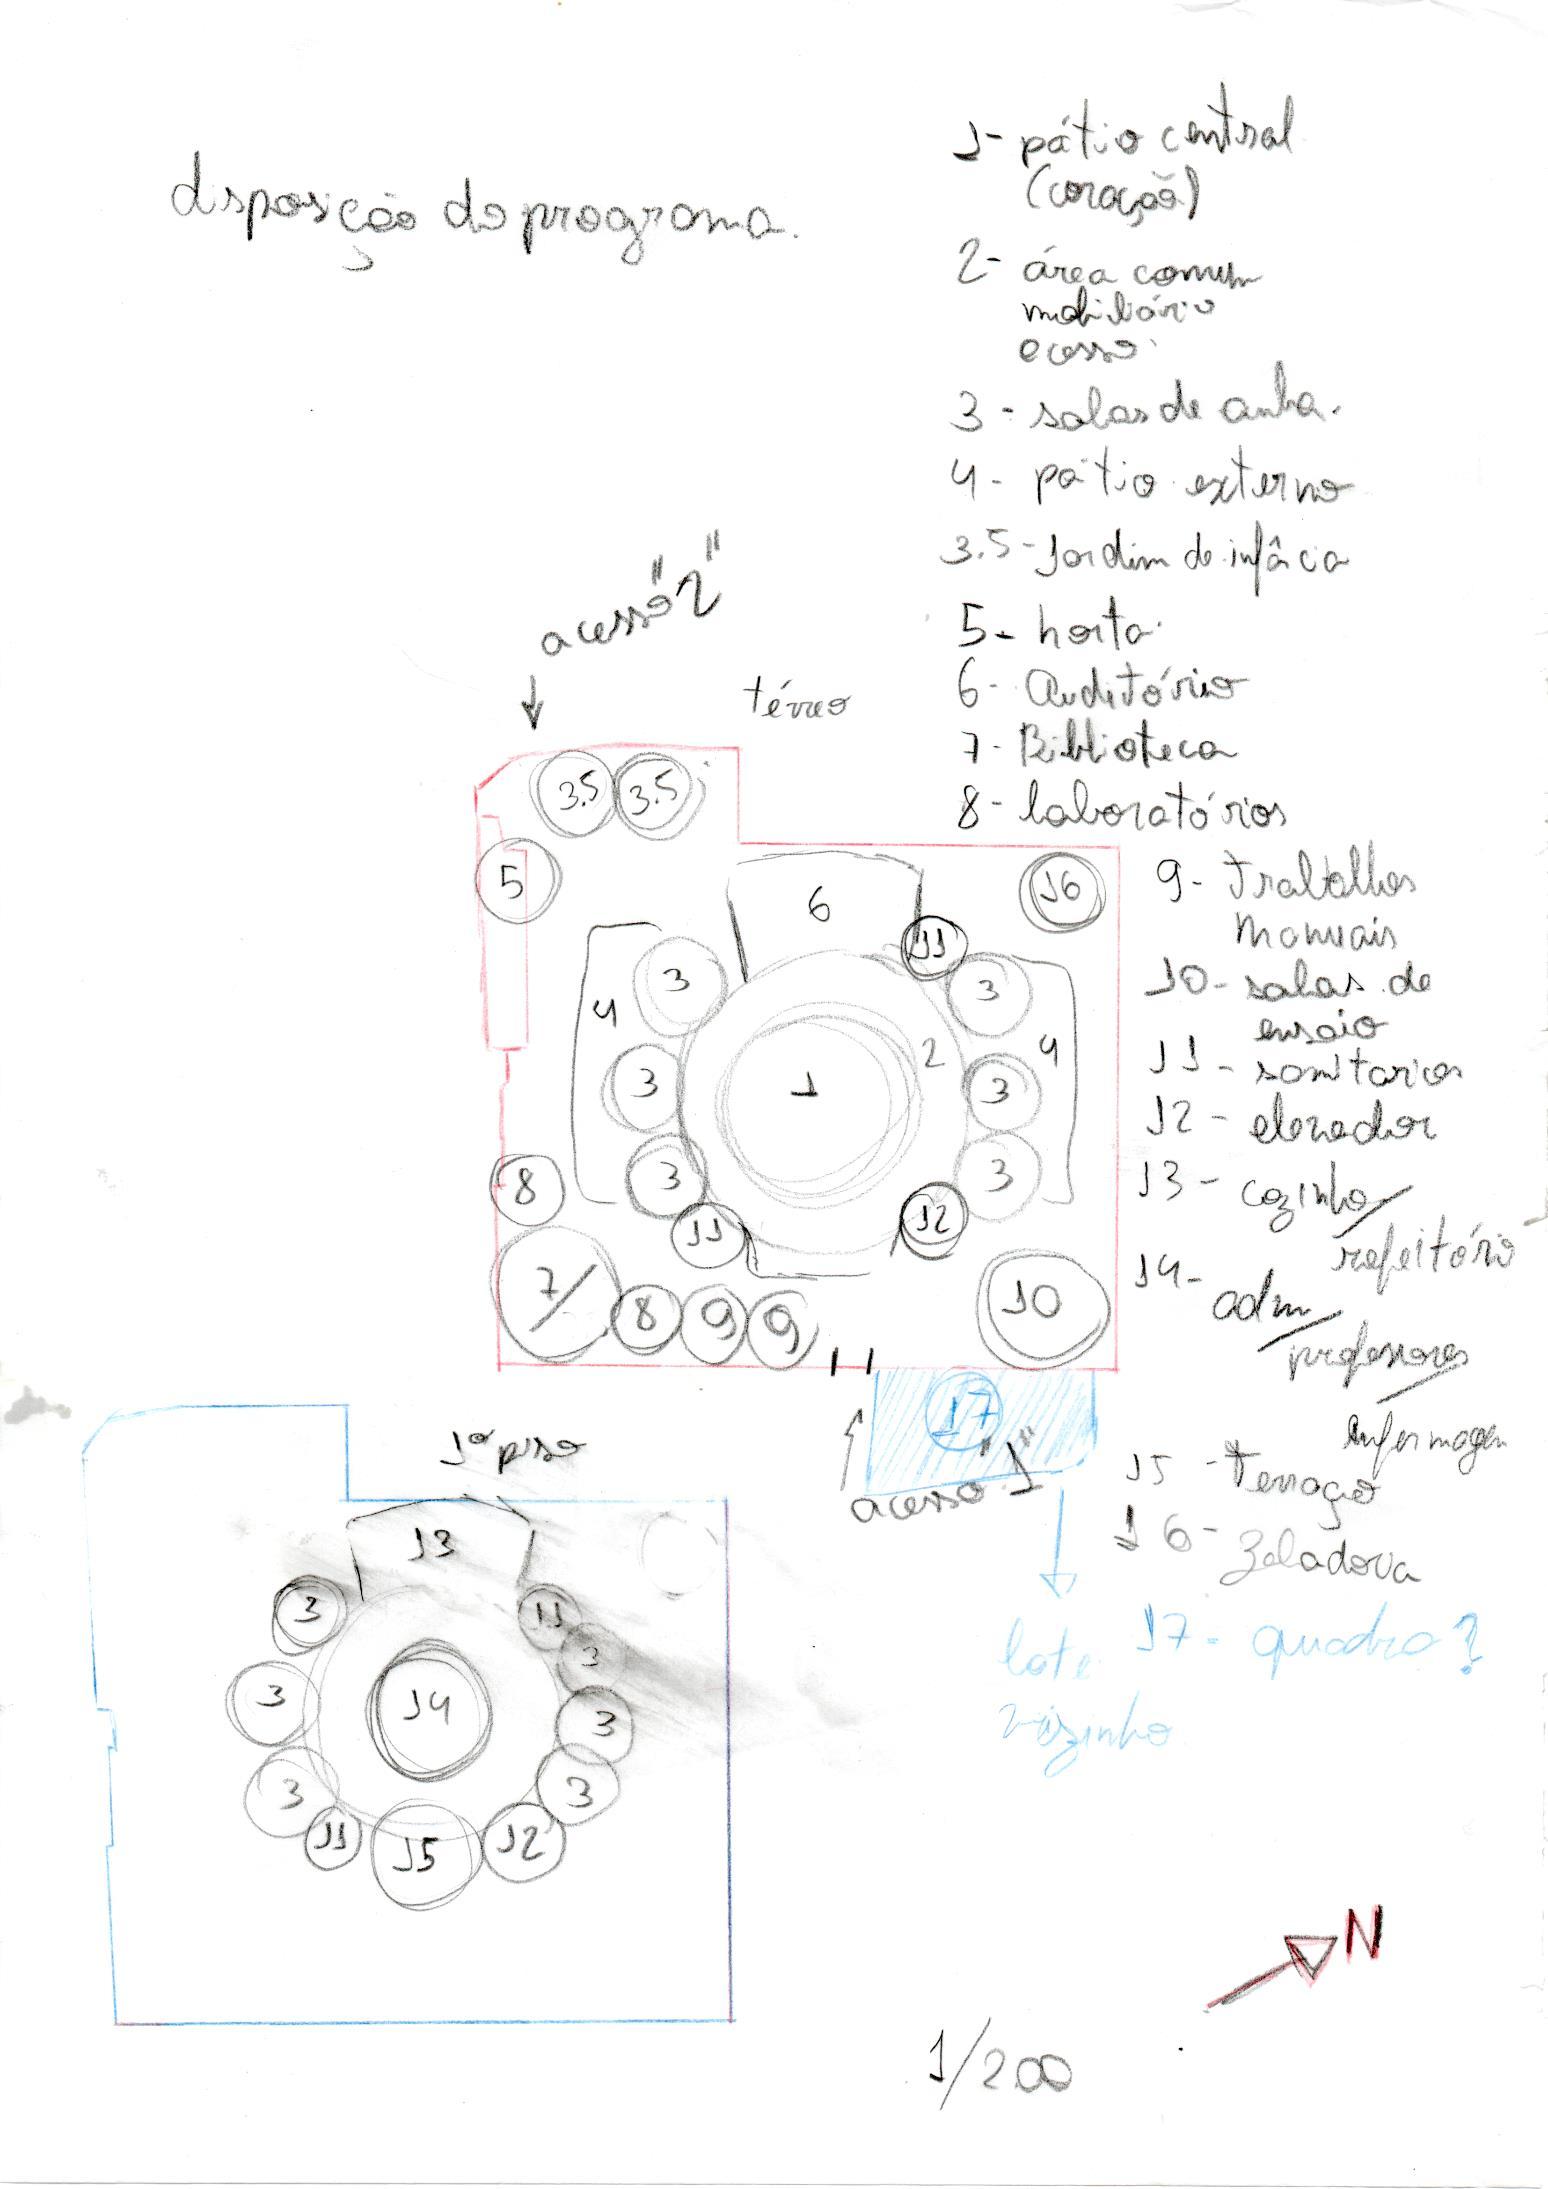 disposição do programa.
1- pátio central
(coração)
2- área comum
mobiliário
acesso
3 - salas de aula.
4 - pátio externo
3.5 - Jardim de infância
5 - horta
6 - Auditório
7 - Biblioteca
8 - laboratórios
9 - Trabalhos
manuais
10 - salas de
ensaio
11 - sanitarios
12 - elevador
13 - cozinha/
refeitório
14 - adm/
professores/
enfermagem
15 - Terraço
16 - Zeladoria
17 - quadra?
acesso "2"
térreo
3.5 3.5
5
6
16
11
3
3
4
2
4
3
1
3
3
3
8
11
12
7/
8
9
9
10
17
acesso "1"
lote
vizinho
1º piso
13
3
11
3
3
14
3
3
3
11
15
12
N
1/200